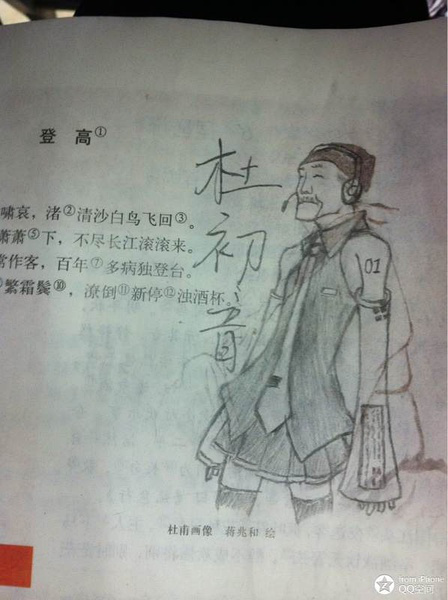 登 高①
啸哀，渚②清沙白鸟飞回③。
萧萧⑤下，不尽长江滚滚来。
常作客，百年⑦多病独登台。
繁霜鬓⑩，潦倒⑪新停⑫浊酒杯。
杜初音
01
杜甫画像 蒋兆和 绘
from iPhone
QQ空间